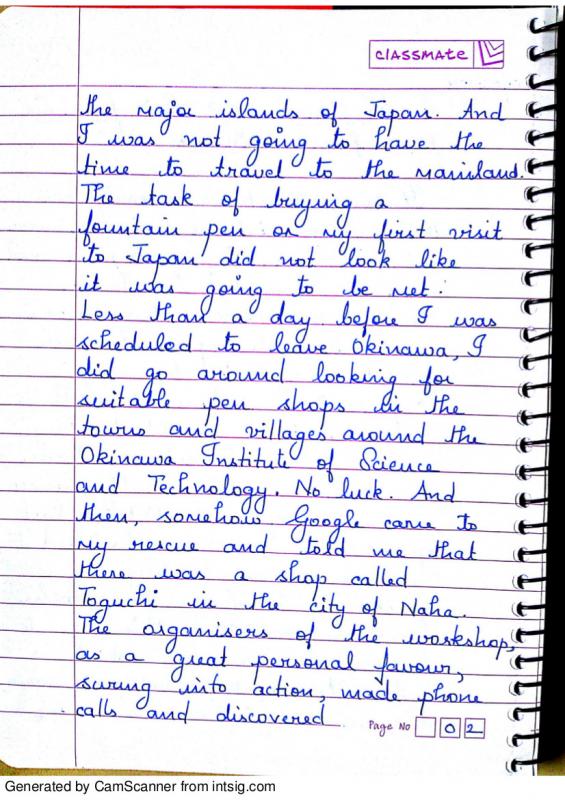 CLASSMATE
the major islands of Japan. And
I was not going to have the
time to travel to the mainland.
The task of buying a
fountain pen on my first visit
to Japan did not look like
it was going to be met.
Less than a day before I was
scheduled to leave Okinawa, I
did go around looking for
suitable pen shops in the
towns and villages around the
Okinawa Institute of Science
and Technology. No luck. And
then, somehow Google came to
my rescue and told me that
there was a shop called
Toguchi in the city of Naha.
The organisers of the workshop,
as a great personal favour,
swung into action, made phone
calls and discovered
Page No 02
Generated by CamScanner from intsig.com